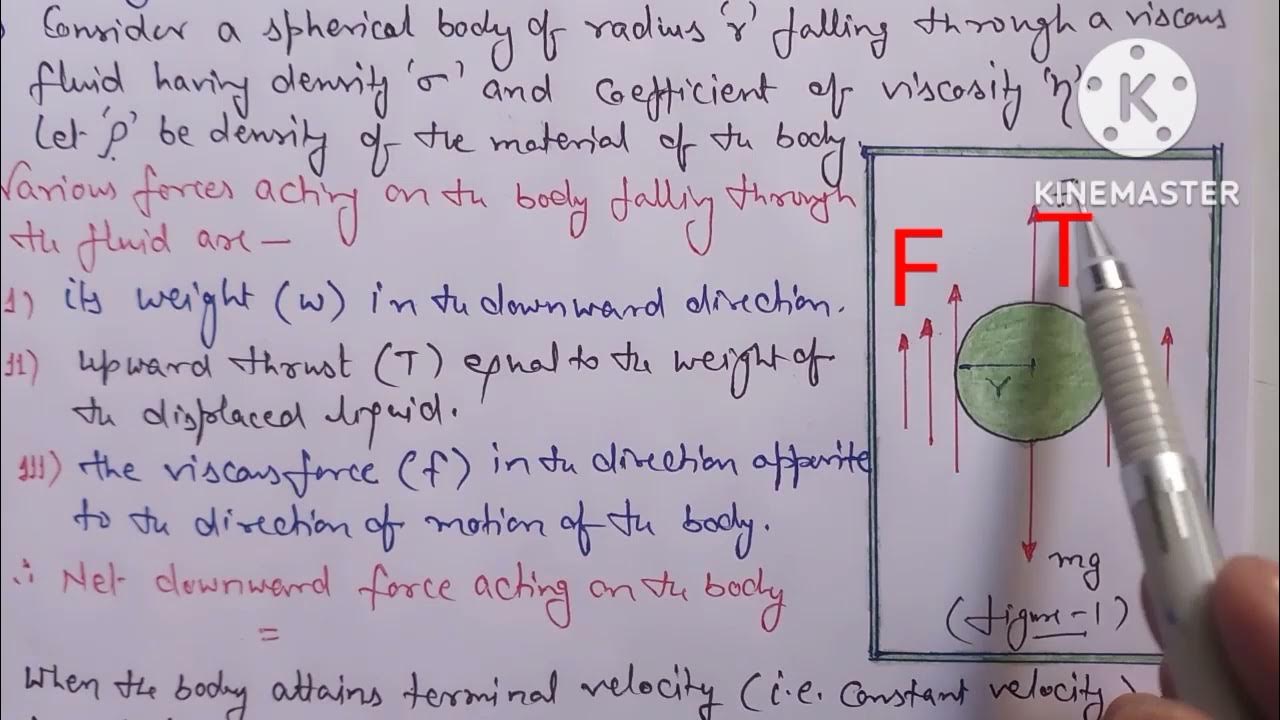 Consider a spherical body of radius 'r' falling through a viscous
fluid having density 'σ' and coefficient of viscosity 'η'
Let 'ρ' be density of the material of the body.
Various forces acting on the body falling through
the fluid are —
I) its weight (w) in the downward direction.
II) upward thrust (T) equal to the weight of
the displaced liquid.
III) the viscous force (f) in the direction opposite
to the direction of motion of the body.
∴ Net downward force acting on the body
=
When the body attains terminal velocity (i.e. constant velocity)
K
KINEMASTER
F
T
r
mg
(figure-1)